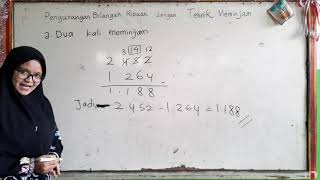 Pengurangan Bilangan Ribuan dengan Teknik Meminjam
a. Dua kali meminjam
3 14 12
2 4 5 2
1 2 6 4 -
1. 1 8 8
Jadi 2 4 5 2 - 1 2 6 4 = 1.188